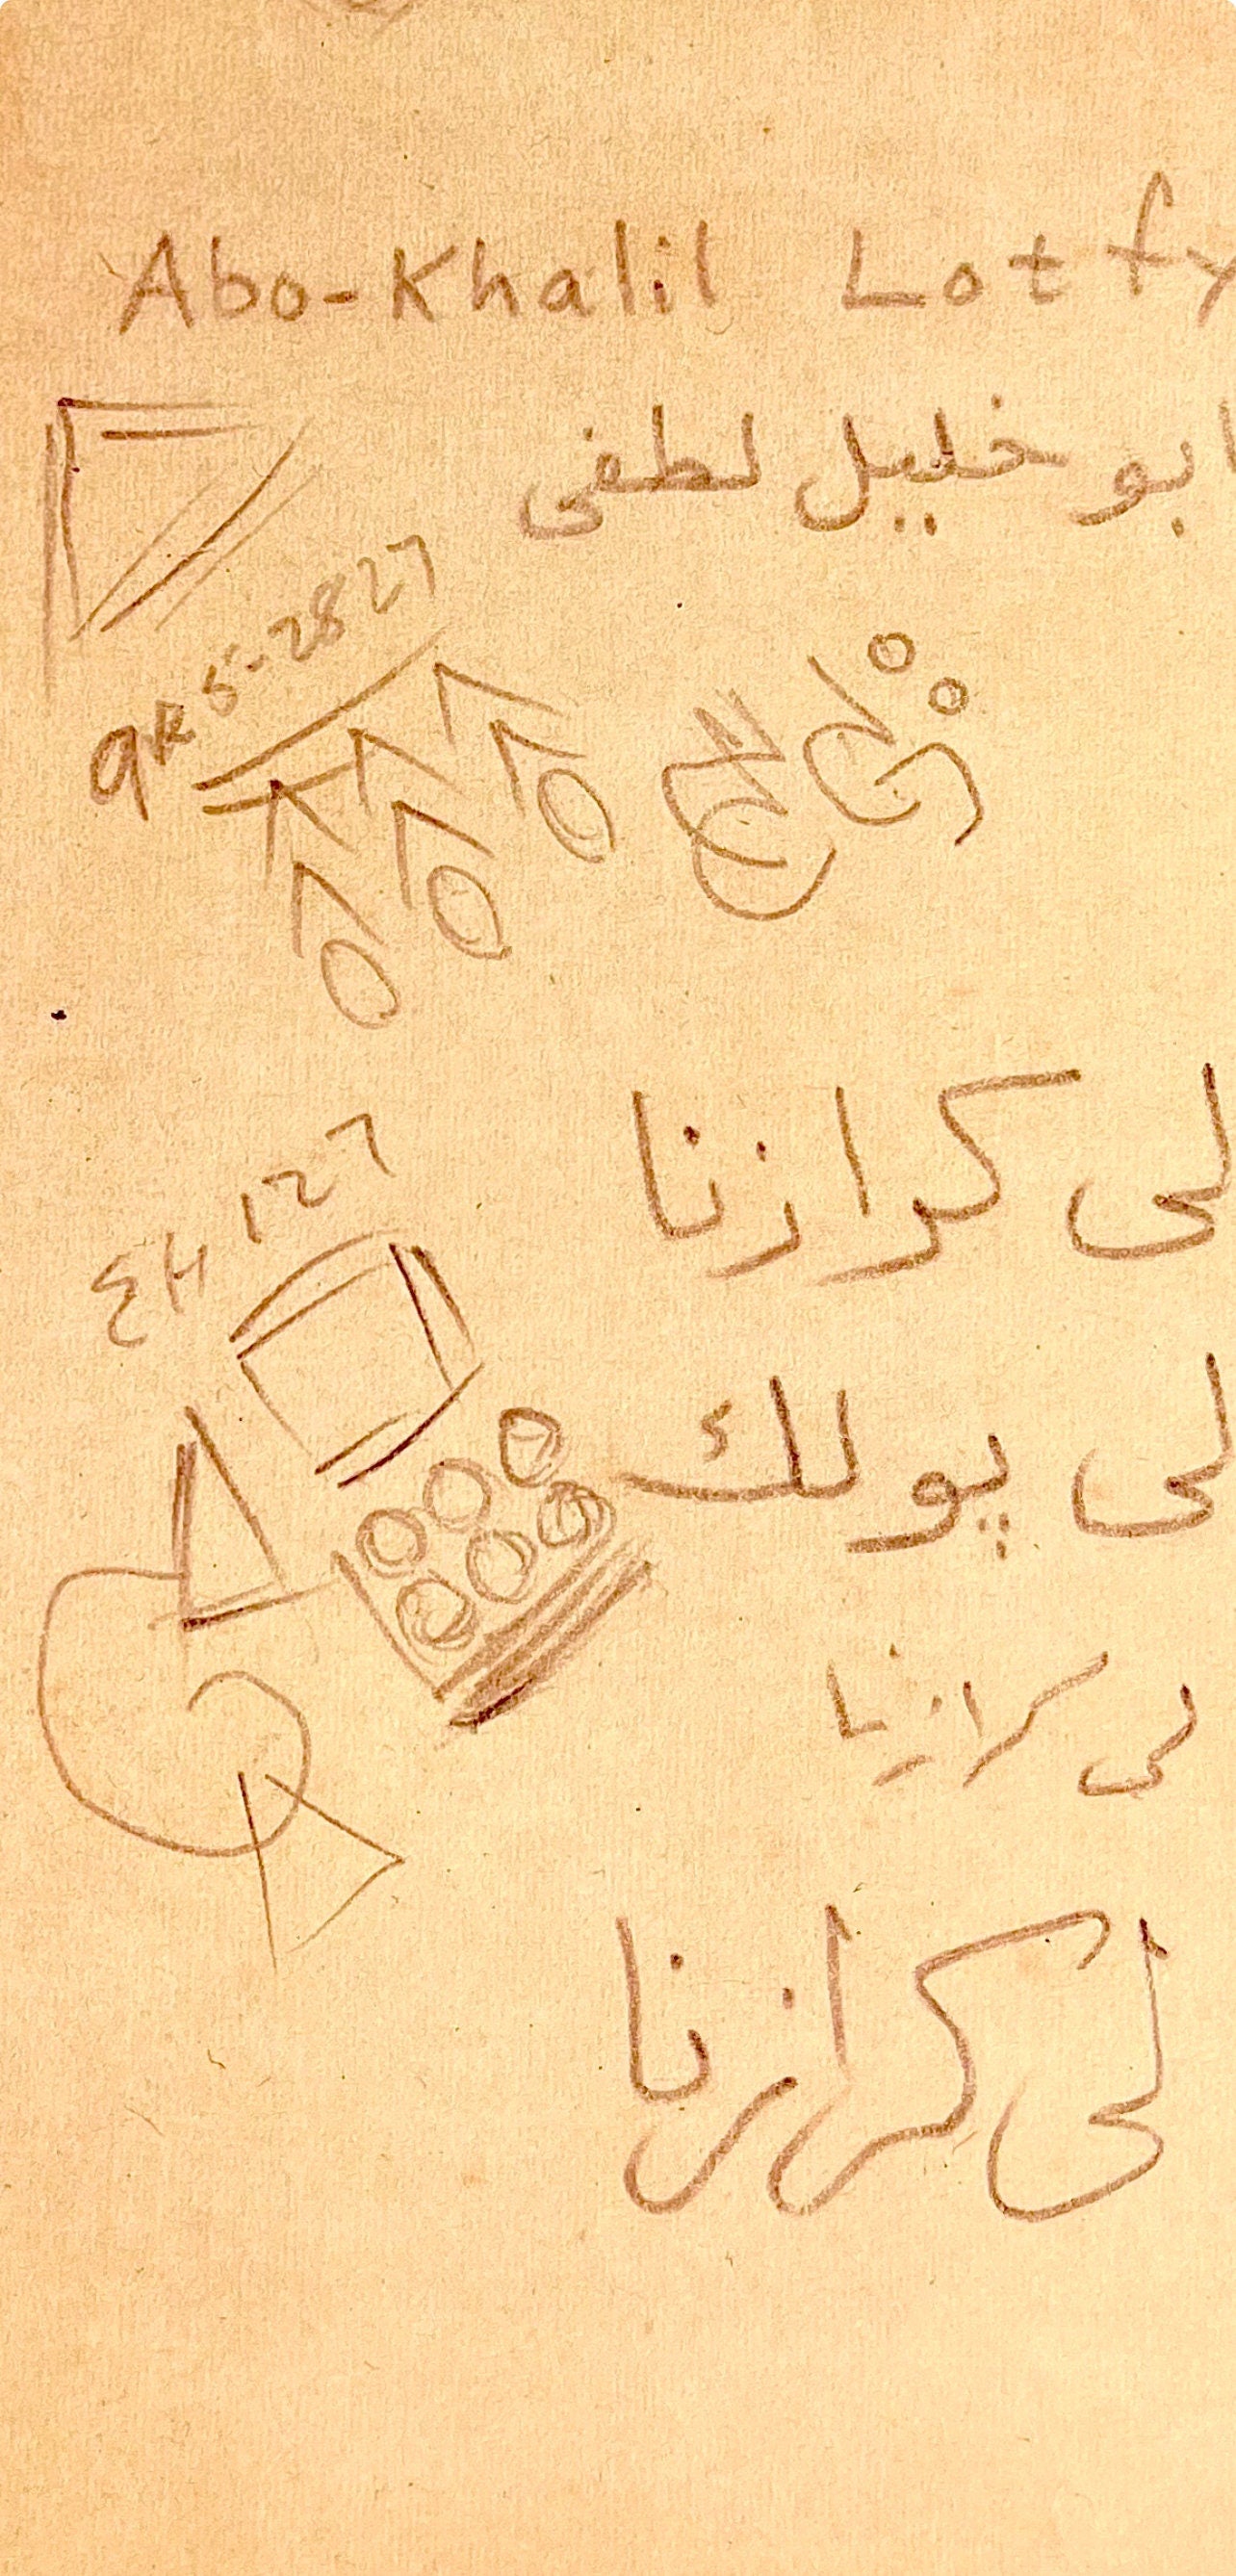 Abo-Khalil Lotfy
ابو خليل لطفى
5-2827
لى كرازنا
EH 127
لى پولك
لى كرازنا
لى كرازنا